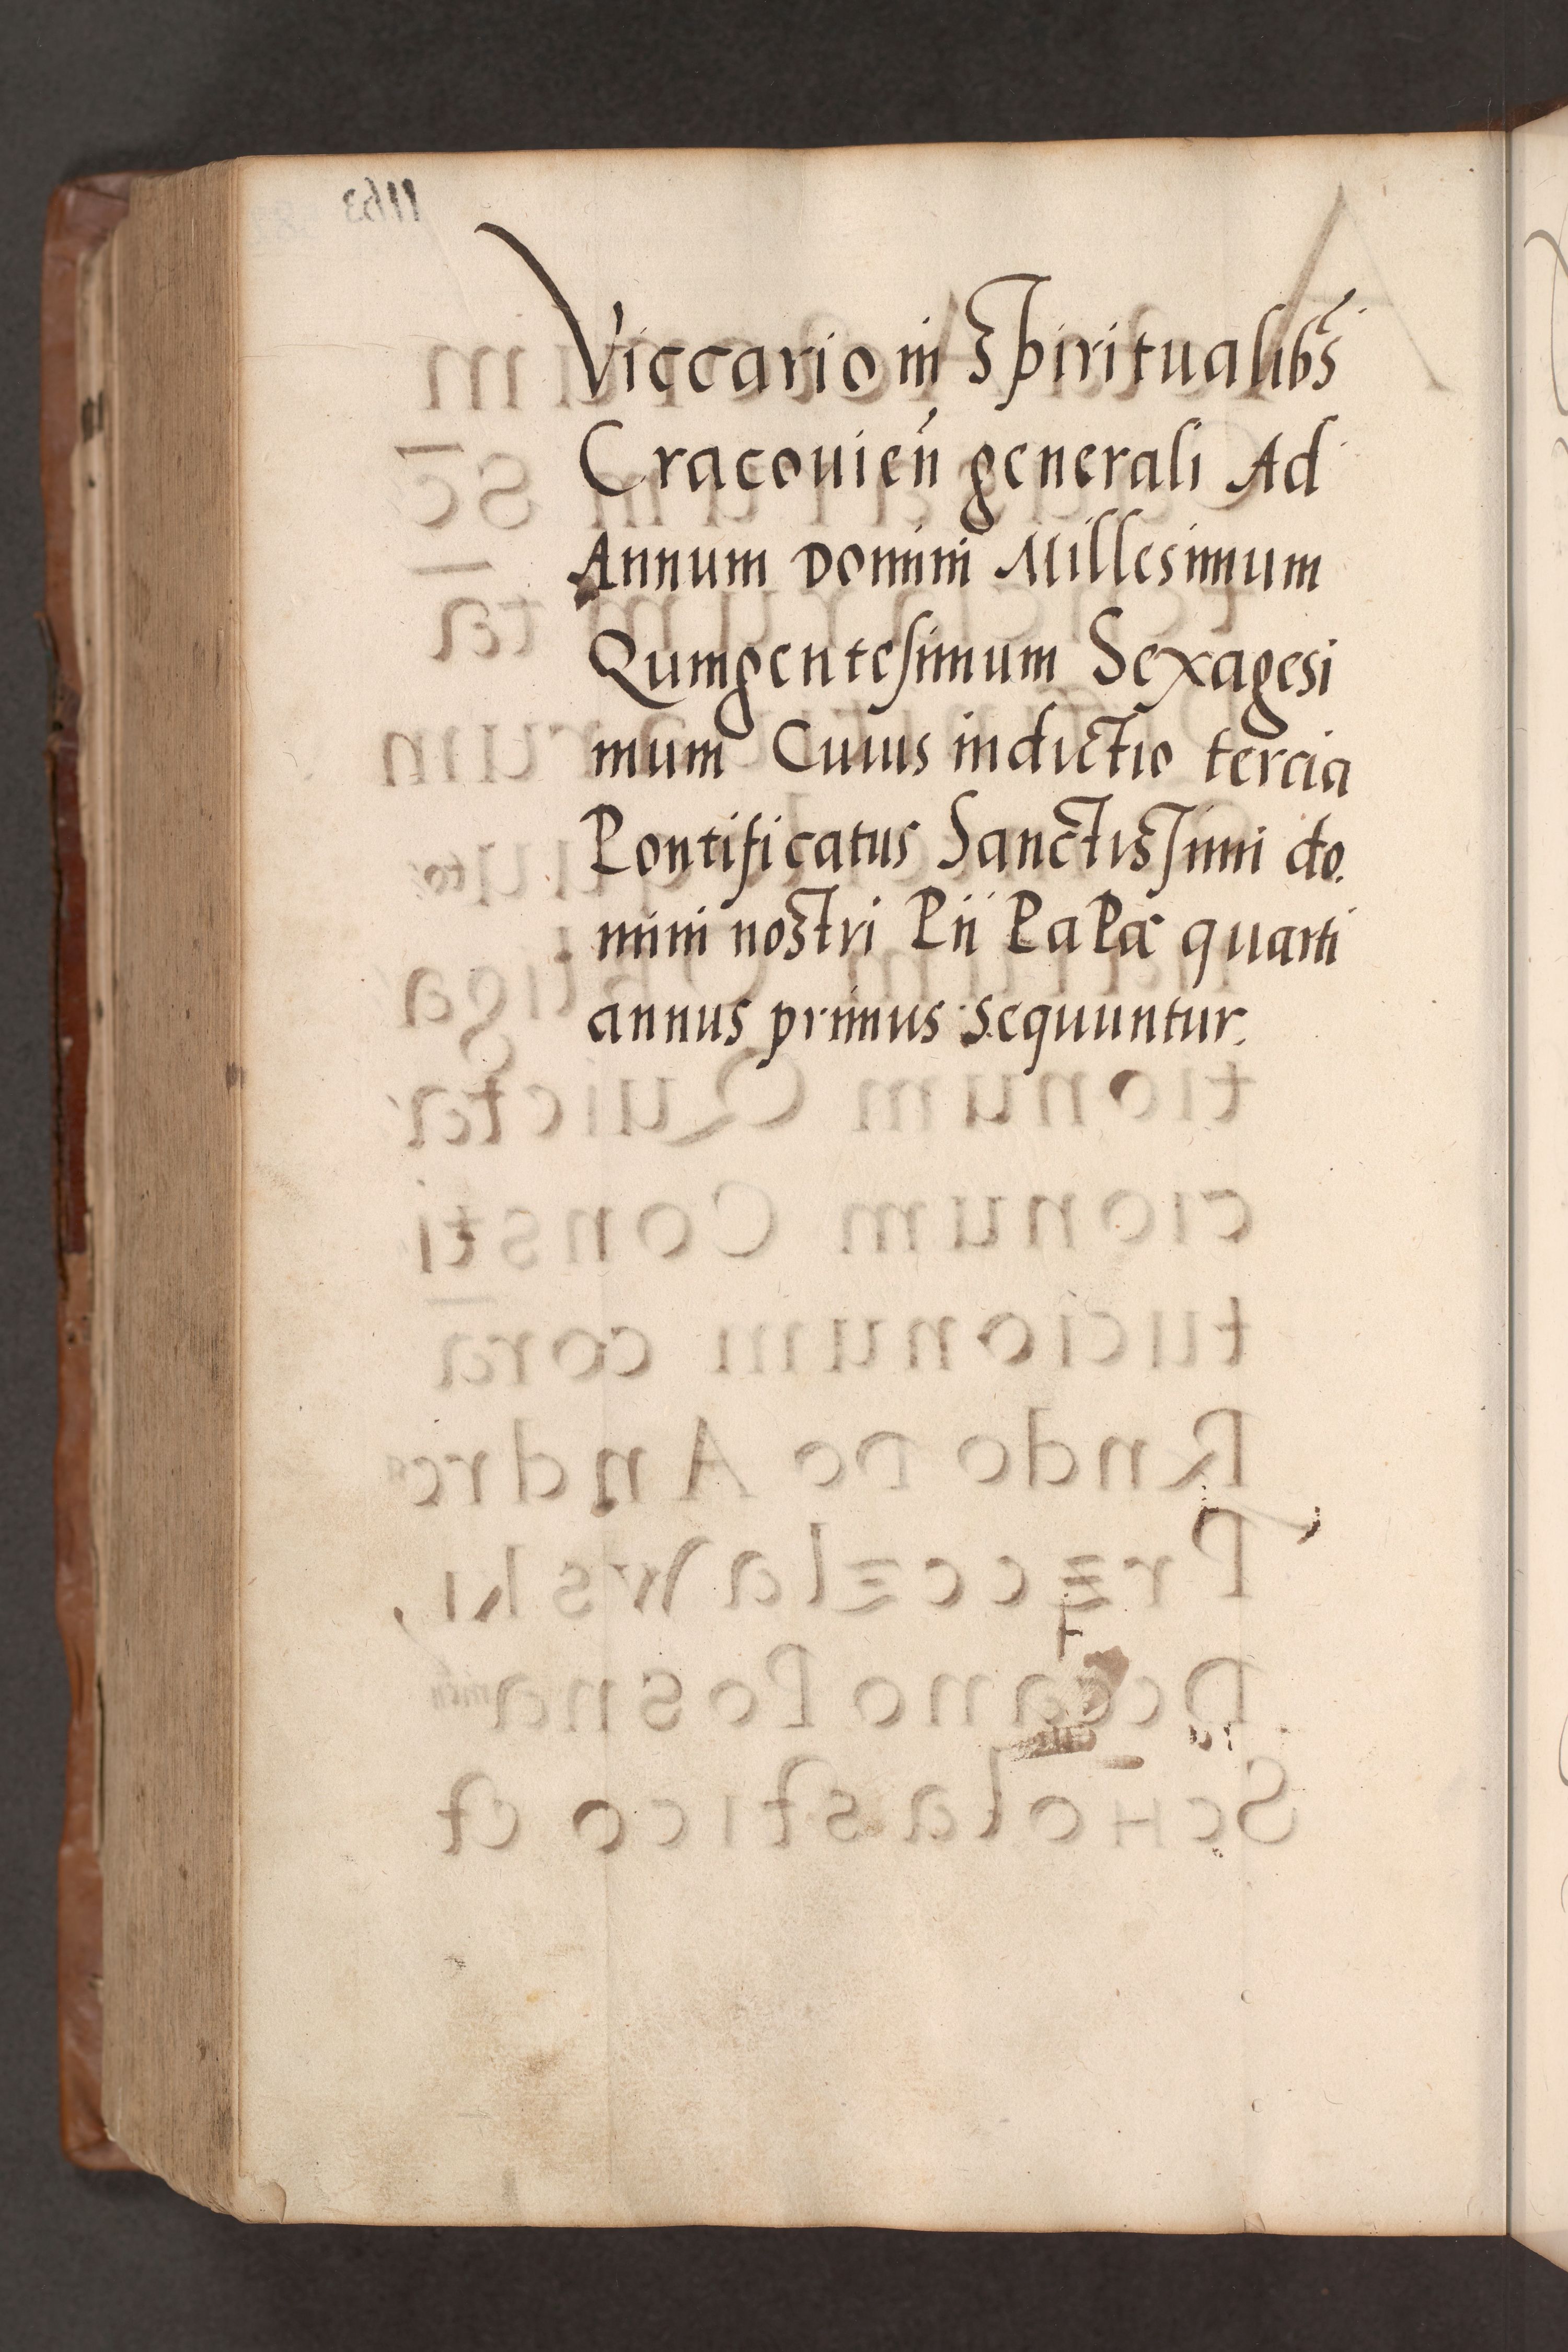 Viccario in Spiritualibs
Cracouień generali Ad
Annum Domini Millesimum
Quingentesimum Sexagesi
mum Cuius indictio tercia
Pontificatus Sanctissimi do.
mini nostri Pii PaPæ quarti
annus primus sequuntur.